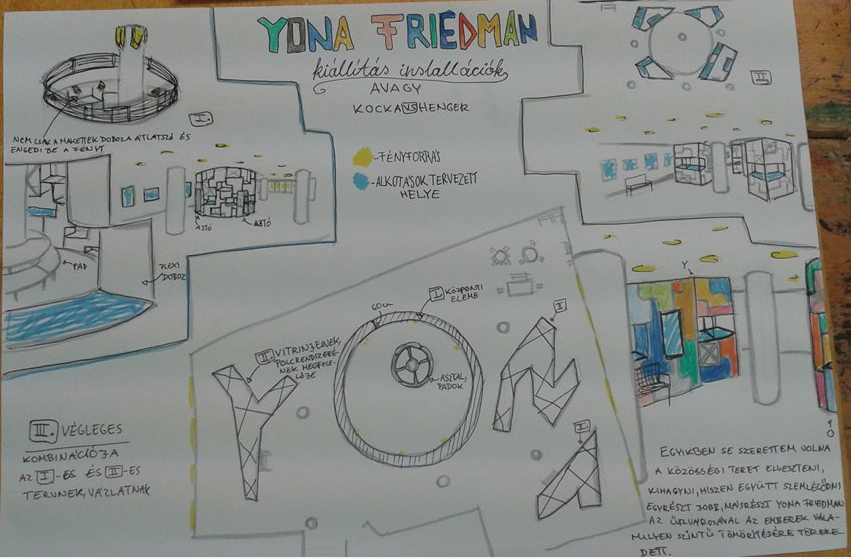 YONA FRIEDMAN
kiállítás installációk
AVAGY
KOCKA VS HENGER
I.
NEM CSAK A MAKETTEK DOBOZA ÁTLÁTSZÓ ÉS
ENGEDI BE A FÉNYT
II
-FÉNYFORRÁS
-ALKOTÁSOK TERVEZETT
HELYE
AJTÓ
AJTÓ
PAD
PLEXI
DOBOZ
Y
O
I KÖZPONTI
ELEME
II. VITRINJEINEK,
POLCRENDSZERÉ-
NEK MEGFELE-
LŐJE
ASZTAL,
PADOK
I
I
III. VÉGLEGES
KOMBINÁCIÓJA
AZ I-ES ÉS II-ES
TERÜNEK, VÁZLATNAK
EGYIKBEN SE SZERETTEM VOLNA
A KÖZÖSSÉGI TERET ELVESZTENI,
KIHAGYNI, HISZEN EGYÜTT SZEMLÉLŐDNI
EGYRÉSZT JOBB, MÁSRÉSZT YONA FRIEDMAN
AZ ŰRVÁROSÁVAL AZ EMBEREK VALA-
MILYEN SZINTŰ TÖMÖRÍTÉSÉRE TÖREKE-
DETT.